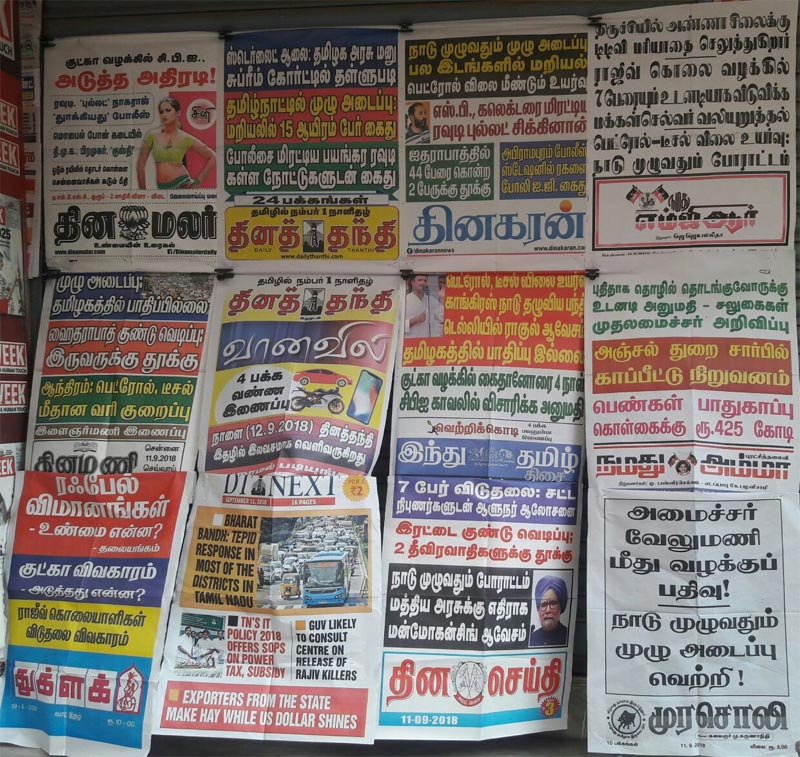 குட்கா வழக்கில் சி.பி.ஐ.,
அடுத்த அதிரடி!
ரவுடி, 'புல்லட்' நாகராஜ்
'தூக்கியது' போலீஸ்
மொபைல் போன் கடையில்
தி.மு.க., பிரமுகர், 'குஸ்தி'
தினமலர்
உண்மையின் உரைகல்
www.dinamalar.com
f/Dinamalardaily
ஸ்டெர்லைட் ஆலை: தமிழக அரசு மனு
சுப்ரீம் கோர்ட்டில் தள்ளுபடி
தமிழ்நாட்டில் முழு அடைப்பு:
மறியலில் 15 ஆயிரம் பேர் கைது
போலீசை மிரட்டிய பயங்கர ரவுடி
கள்ள நோட்டுகளுடன் கைது
24 பக்கங்கள்
தமிழில் நம்பர் 1 நாளிதழ்
தினத் தந்தி
DAILY THANTHI
www.dailythanthi.com
நாடு முழுவதும் முழு அடைப்பு
பல இடங்களில் மறியல்
பெட்ரோல் விலை மீண்டும் உயர்வு
எஸ்.பி., கலெக்டரை மிரட்டிய
ரவுடி புல்லட் சிக்கினான்
ஐதராபாத்தில்
44 பேரை கொன்ற
2 பேருக்கு தூக்கு
அபிராமபுரம் போலீஸ்
ஸ்டேஷனில் ரகளை
போலி ஐ.ஜி. கைது
தினகரன்
dinakarannews
www.dinakaran.com
திருச்சியில் அண்ணா சிலைக்கு
டிடிவி மரியாதை செலுத்துகிறார்
ராஜீவ் கொலை வழக்கில்
7 பேரையும் உடனடியாக விடுவிக்க
மக்கள்செல்வர் வலியுறுத்தல்
பெட்ரோல்-டீசல் விலை உயர்வு:
நாடு முழுவதும் போராட்டம்
நமது
எம்ஜிஆர்
முழு அடைப்பு:
தமிழகத்தில் பாதிப்பில்லை
ஹைதராபாத் குண்டு வெடிப்பு:
இருவருக்கு தூக்கு
ஆந்திரம்: பெட்ரோல், டீசல்
மீதான வரி குறைப்பு
இளைஞர்மணி இணைப்பு
தினமணி
சென்னை
11.9.2018
செவ்வாய்
தமிழில் நம்பர் 1 நாளிதழ்
தினத் தந்தி
வானவில்
4 பக்க
வண்ண
இணைப்பு
நாளை (12.9.2018) தினத்தந்தி
இதழில் இலவசமாக வெளிவருகிறது
பெட்ரோல், டீசல் விலை உயர்வு
காங்கிரஸ் நாடு தழுவிய பந்த்
டெல்லியில் ராகுல் ஆவேசம்
தமிழகத்தில் பாதிப்பு இல்லை
குட்கா வழக்கில் கைதானோரை 4 நாள்
சிபிஐ காவலில் விசாரிக்க அனுமதி
வெற்றிக்கொடி
இந்து தமிழ்
திசை
புதிதாக தொழில் தொடங்குவோருக்கு
உடனடி அனுமதி - சலுகைகள்
முதலமைச்சர் அறிவிப்பு
அஞ்சல் துறை சார்பில்
காப்பீட்டு நிறுவனம்
பெண்கள் பாதுகாப்பு
கொள்கைக்கு ரூ.425 கோடி
நமது அம்மா
ரஃபேல்
விமானங்கள்
- உண்மை என்ன?
- தலையங்கம்
குட்கா விவகாரம்
- அடுத்தது என்ன?
ராஜீவ் கொலையாளிகள்
விடுதலை விவகாரம்
துக்ளக்
ரூ.10-00
DT NEXT
₹2
SEPTEMBER 11, 2018
16 PAGES
BHARAT
BANDH: TEPID
RESPONSE IN
MOST OF THE
DISTRICTS IN
TAMIL NADU
TN'S IT
POLICY 2018
OFFERS SOPS
ON POWER
TAX, SUBSIDY
GUV LIKELY
TO CONSULT
CENTRE ON
RELEASE OF
RAJIV KILLERS
EXPORTERS FROM THE STATE
MAKE HAY WHILE US DOLLAR SHINES
7 பேர் விடுதலை: சட்ட
நிபுணர்களுடன் ஆளுநர் ஆலோசனை
இரட்டை குண்டு வெடிப்பு:
2 தீவிரவாதிகளுக்கு தூக்கு
நாடு முழுவதும் போராட்டம்
மத்திய அரசுக்கு எதிராக
மன்மோகன்சிங் ஆவேசம்
தின செய்தி
11-09-2018
அமைச்சர்
வேலுமணி
மீது வழக்குப்
பதிவு!
நாடு முழுவதும்
முழு அடைப்பு
வெற்றி !
முரசொலி
10 பக்கங்கள்
11. 9. 2018
விலை. ரூ. 5.00